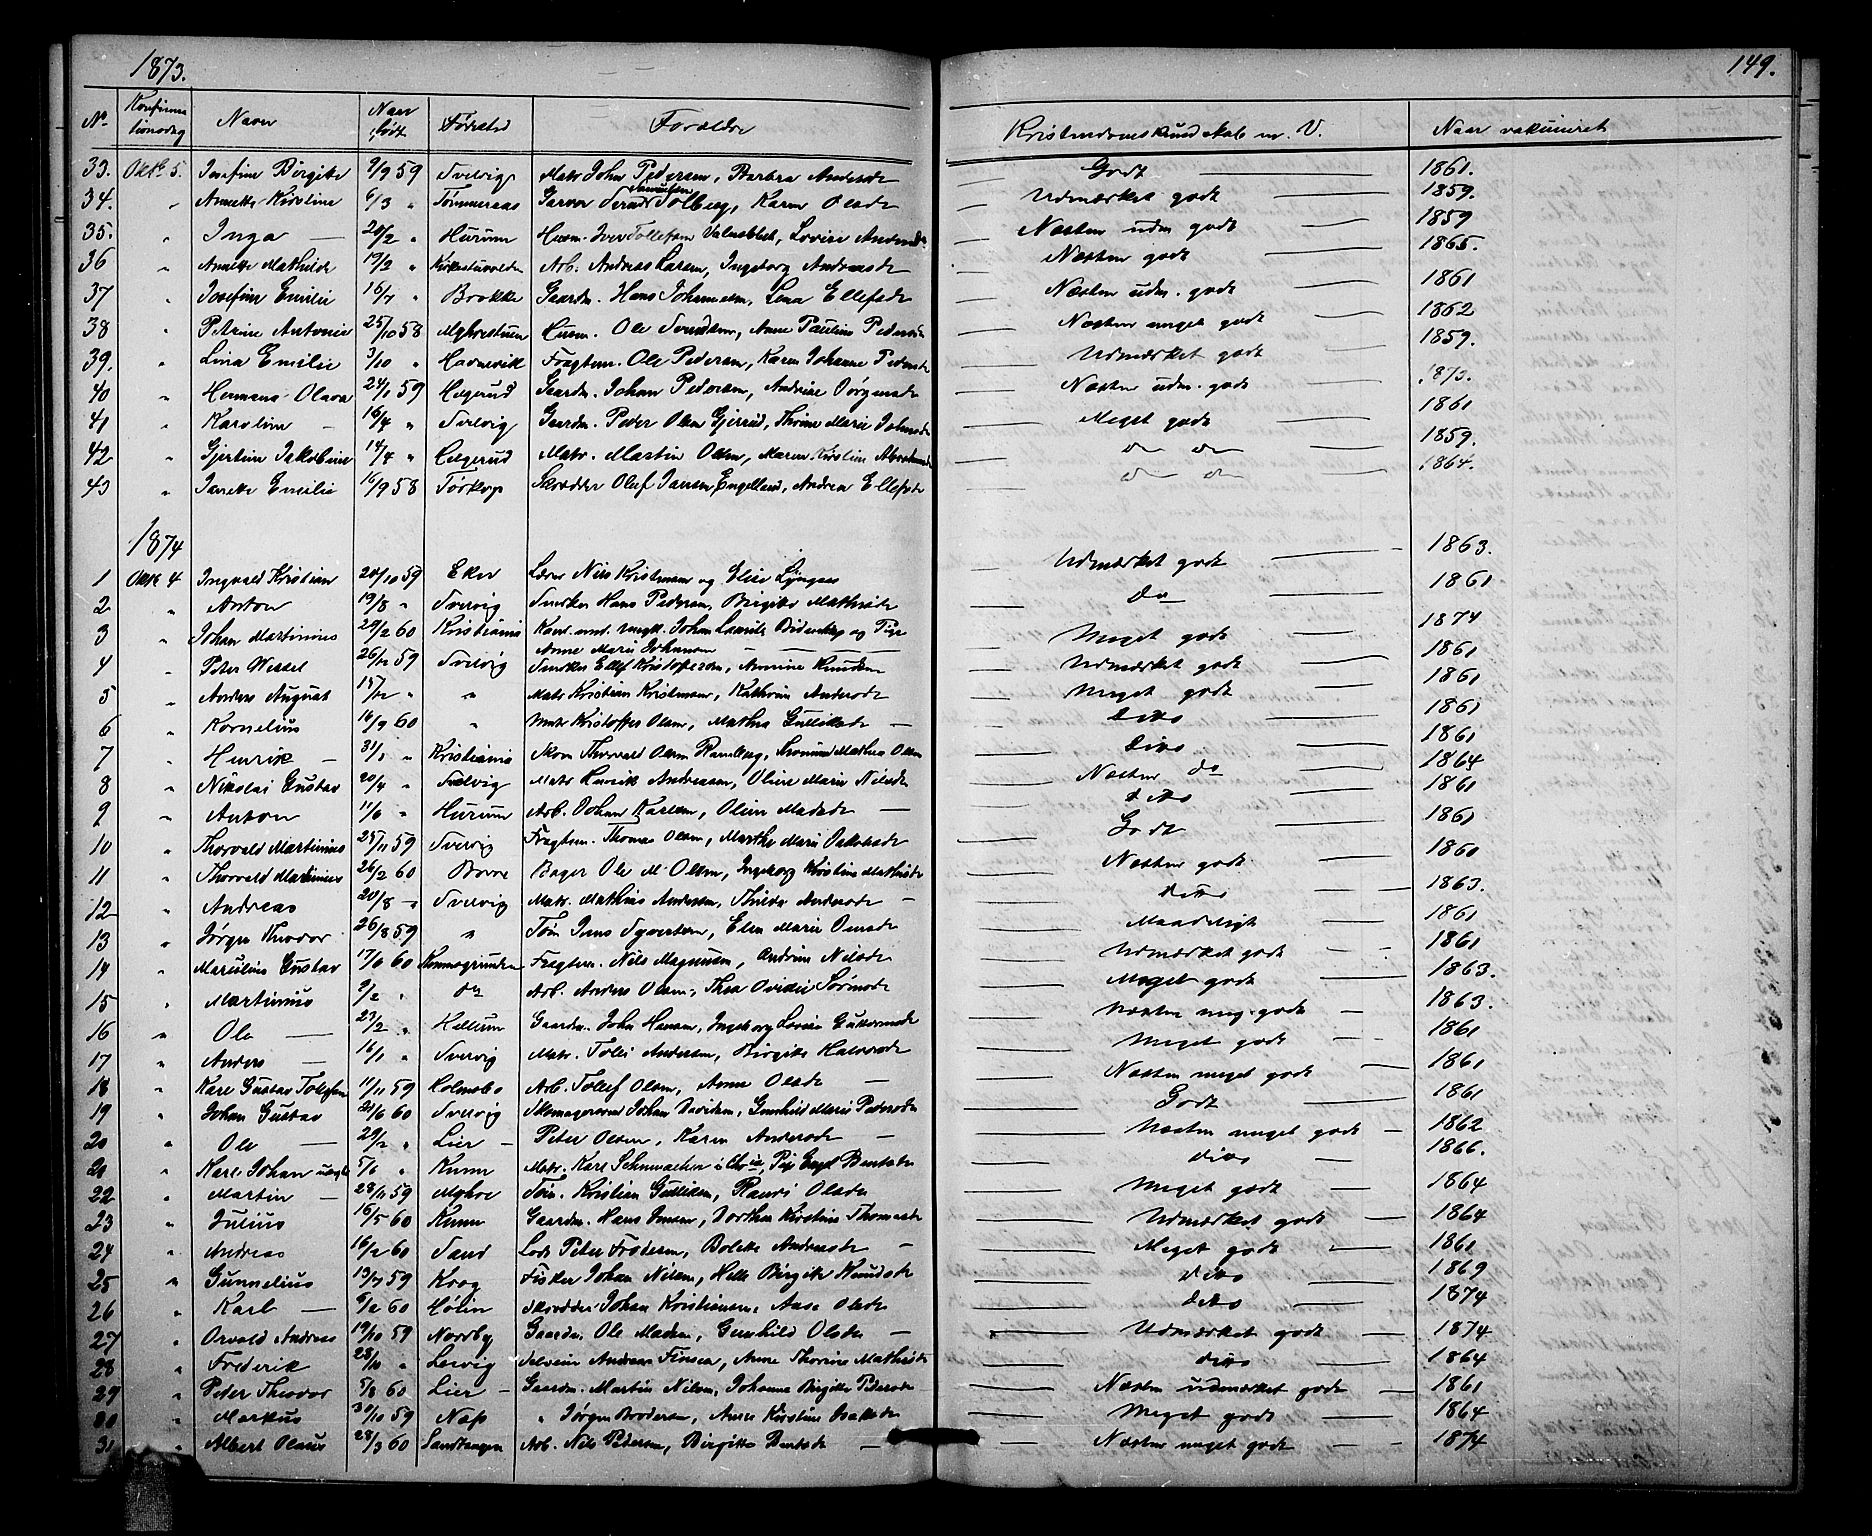 1873.
149.
No Konfirmationsdag Navn Naar født Fødested Forældre Kristendomskundskab m. V. Naar vakcineret
33. Oktb. 5. Josefine Birgitte 9/9 59 Svelvig Matr John Pedersen, Barbra Andersdr Godt 1861.
34. " Annette Kirstine 6/3 " Tømmeraas Garver Svend Samuelsen Solberg, Karen Olsdr Udmærket godt 1859.
35. " Inga 20/2 " Hurum Husm. Iver Tollefsen , Lovise Andersdr Næsten udm godt 1859
36 " Annette Mathilde 19/2 " Arb. Andreas Larsen, Ingeborg Andreasdr Næsten godt 1865.
37 " Josefine Emilie 16/7 " Brokke Gaardm. Hans Johannesen, Lena Ellefsdr Næsten udm. godt 1861
38 " Petrine Antonie 25/10 58 Husm. Ole Svendsen, Anne Pauline Pedersdr Næsten meget godt 1862
39. " Lina Emilie 3/10 " Havnevik Fragtem. Ole Pedersen, Karen Johanne Pedersdr Udmærket godt 1859.
40 " Hermana Olava 24/1 59 Hægerud Gaardm. Johan Pedersen, Andrine Jørgensdr Næsten udm. godt 1873.
41 " Karoline 16/4 " Svelvig Gaardm. Peder Olsen Gjerrud, Thrine Marie Johnsdr Meget godt 1861
42 " Gjertine Jakobine 14/4 " Hægerud Matr. Martin Olsen, Maren Kirstine Abrahamsdr do do 1859.
43 " Janette Emilie 16/9 58 Tørkop Skrædder Oluf Jansen Engelland, Andrea Ellefsdr do do 1864.
1874
1 Oktb 4 Ingvald Kristian 20/10 59 Eker Lærer Nils Kristensen og Elise Udmærket godt 1863.
2 " Anton 19/8 " Svelvig Snedker Hans Pedersen, Birgitte Mathisdr do 1861
3 " Johan Martinius 29/2 60 Kristiania Kand. med. ungk. Johan Bidenkap og Pige Anne Marie Johansen Meget godt 1874
4 " Peter Wessel 26/12 59 Svelvig Snedker Ellef Kristoffersen, Annine Knudsen Udmærket godt 1861
5 " Anders August 15/12 " " Matr Kristian Kristensen, Kathrine Andersdr Meget godt 1861
6 " Kornelius 16/9 60 " Matr Kristoffer Olsen, Mathea Gulliksdr ditto 1861
7 " Henrik 31/1 " Kristiania Skom Thorvald Olsen Ramberg, Mathea Olsen ditto 1861
8 " Nikolai Gustav 20/4 " Svelvig Matr Henrik Andreasen, Oline Marie Nilsdr Næsten do 1864
9 " Anton 11/6 " Hurum Arb. Johan Karlsen, Oline Madsdr ditto 1861
10 " Thorvald Martinius 25/11 59 Svelvig Fragtem. Thomas Olsen, Marthe Marie Jakobsdr Godt 1861
11 " Thorvald Martinius 26/2 60 Borre Bager Ole M. Olsen, Ingeborg Kirstine Mathisdr Næsten godt 1860
12 " Andreas 20/8 " Svelvig Matr. Mathias Andersen, Thilda Andersdr ditto 1863.
13 " Jørgen Theodor 26/8 59 " Tøm Jens Syvertsen, Elen Marie Jensdr Maadeligt 1861
14 " Marcelius Gustav 17/6 60 Fragtem. Nils Magnusen, Andrine Nilsdr Udmærket godt 1861
15 " Martinius 9/2 " do Arb. Anders Olsen, Thea Ovidie Sørensdr Meget godt 1863.
16 " Ole 23/2 " Hellum Gaardm. John Hansen, Ingeborg Lovise Guttormsdr Næsten meg. godt 1863.
17 " Anders 16/1 " Svelvig Matr. Tolli Andersen, Birgitte Halvorsdr Meget godt 1861
18 " Karl Gustav Tollefsen 11/11 59 Holmsbo Arb. Tollef Olsen, Anne Olsdr Næsten meget godt 1861
19 " Johan Gustav 21/6 60 Svelvig Skomagersvend Johan Davidsen, Gunhild Marie Pedersdr Godt 1861
20 " Ole 29/2 " Lier Peter Olsen, Karen Andersdr Næsten meget godt 1862
21 " Karl Johan uægte 5/6 " Kunn Matr. Karl Schumacher i Chria, Pig Engel Berntsdr ditto 1866.
22 " Martin 28/11 59 Tøm. Kristian Gulliksen, Randi Olsdr Meget godt 1864
23 " Julius 16/5 60 Kunn Gaardm. Hans Jensen, Dorthea Kirstine Thomasdr Udmærket godt 1864
24 " Andreas 16/2 60 Sand Lods Peter Frodesen, Bolette Andersdr Meget godt 1861
25 " Gunnelius 13/7 59 Krog Fisker Johan Nilsen, Helle Birgitte Knudsdr ditto 1869
26 " Karl 6/2 60 Hølen Skrædder Johan Kristiansen, Aase Olsdr ditto 1874
27 " Orvald Andreas 19/10 59 Nordby Gaardm. Ole Madsen, Gunhild Olsdr Udmærket godt 1874
28 " Frederik 28/10 " Lervig Selveier Andreas Finsen, Anne Thorine Mathisdr ditto 1864
29 " Peder Theodor 5/8 60 Lier Gaardm. Martin Nilsen, Johanne Birgitte Pedersdr Næsten udmærket godt 1861
30 " Markus 30/10 59 Næs " Jørgen Brodersen, Anne Kirstine Isaksdr Meget godt 1864
31 " Albert Olaus 28/3 60 Sandtangen Arb. Nils Pedersen, Birgitte Berntsdr Næsten meget godt 1874